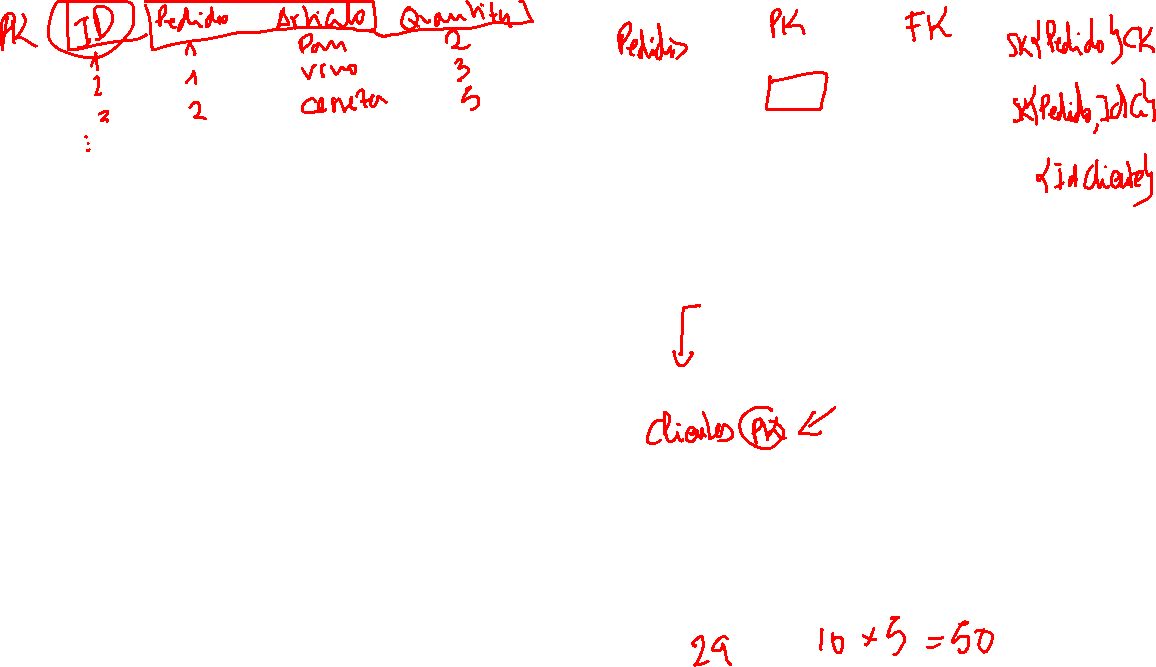 PK ID Pedido Artículo Quantity
1 1 Pan 2
2 1 vino 3
3 2 camiseta 5
⋮
Pedidos PK FK SK{Pedido}CK
SK{Pedido, IdCl}
{IdCliente}
Clientes PK
29 10 x 5 = 50